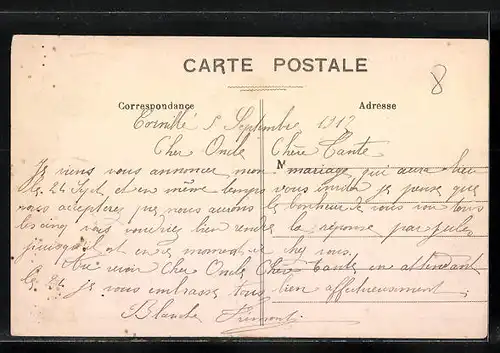 CARTE POSTALE
8
Correspondance
Adresse
Cornillé 5 Septembre 1912
Cher Oncle Chère Tante
M
Je viens vous annoncer mon mariage qui aura lieu
le 24 Sept et en même temps vous inviter je pense que
vous accepterez que nous aurons le bonheur de vous voir tous
les cinq vous voudrez bien rendre la réponse par Jules
puisqu'il est en ce moment chez vous.
Au revoir Cher Oncle Chère Tante en attendant
le 24 je vous embrasse tous bien affectueusement
Blanche Frémont